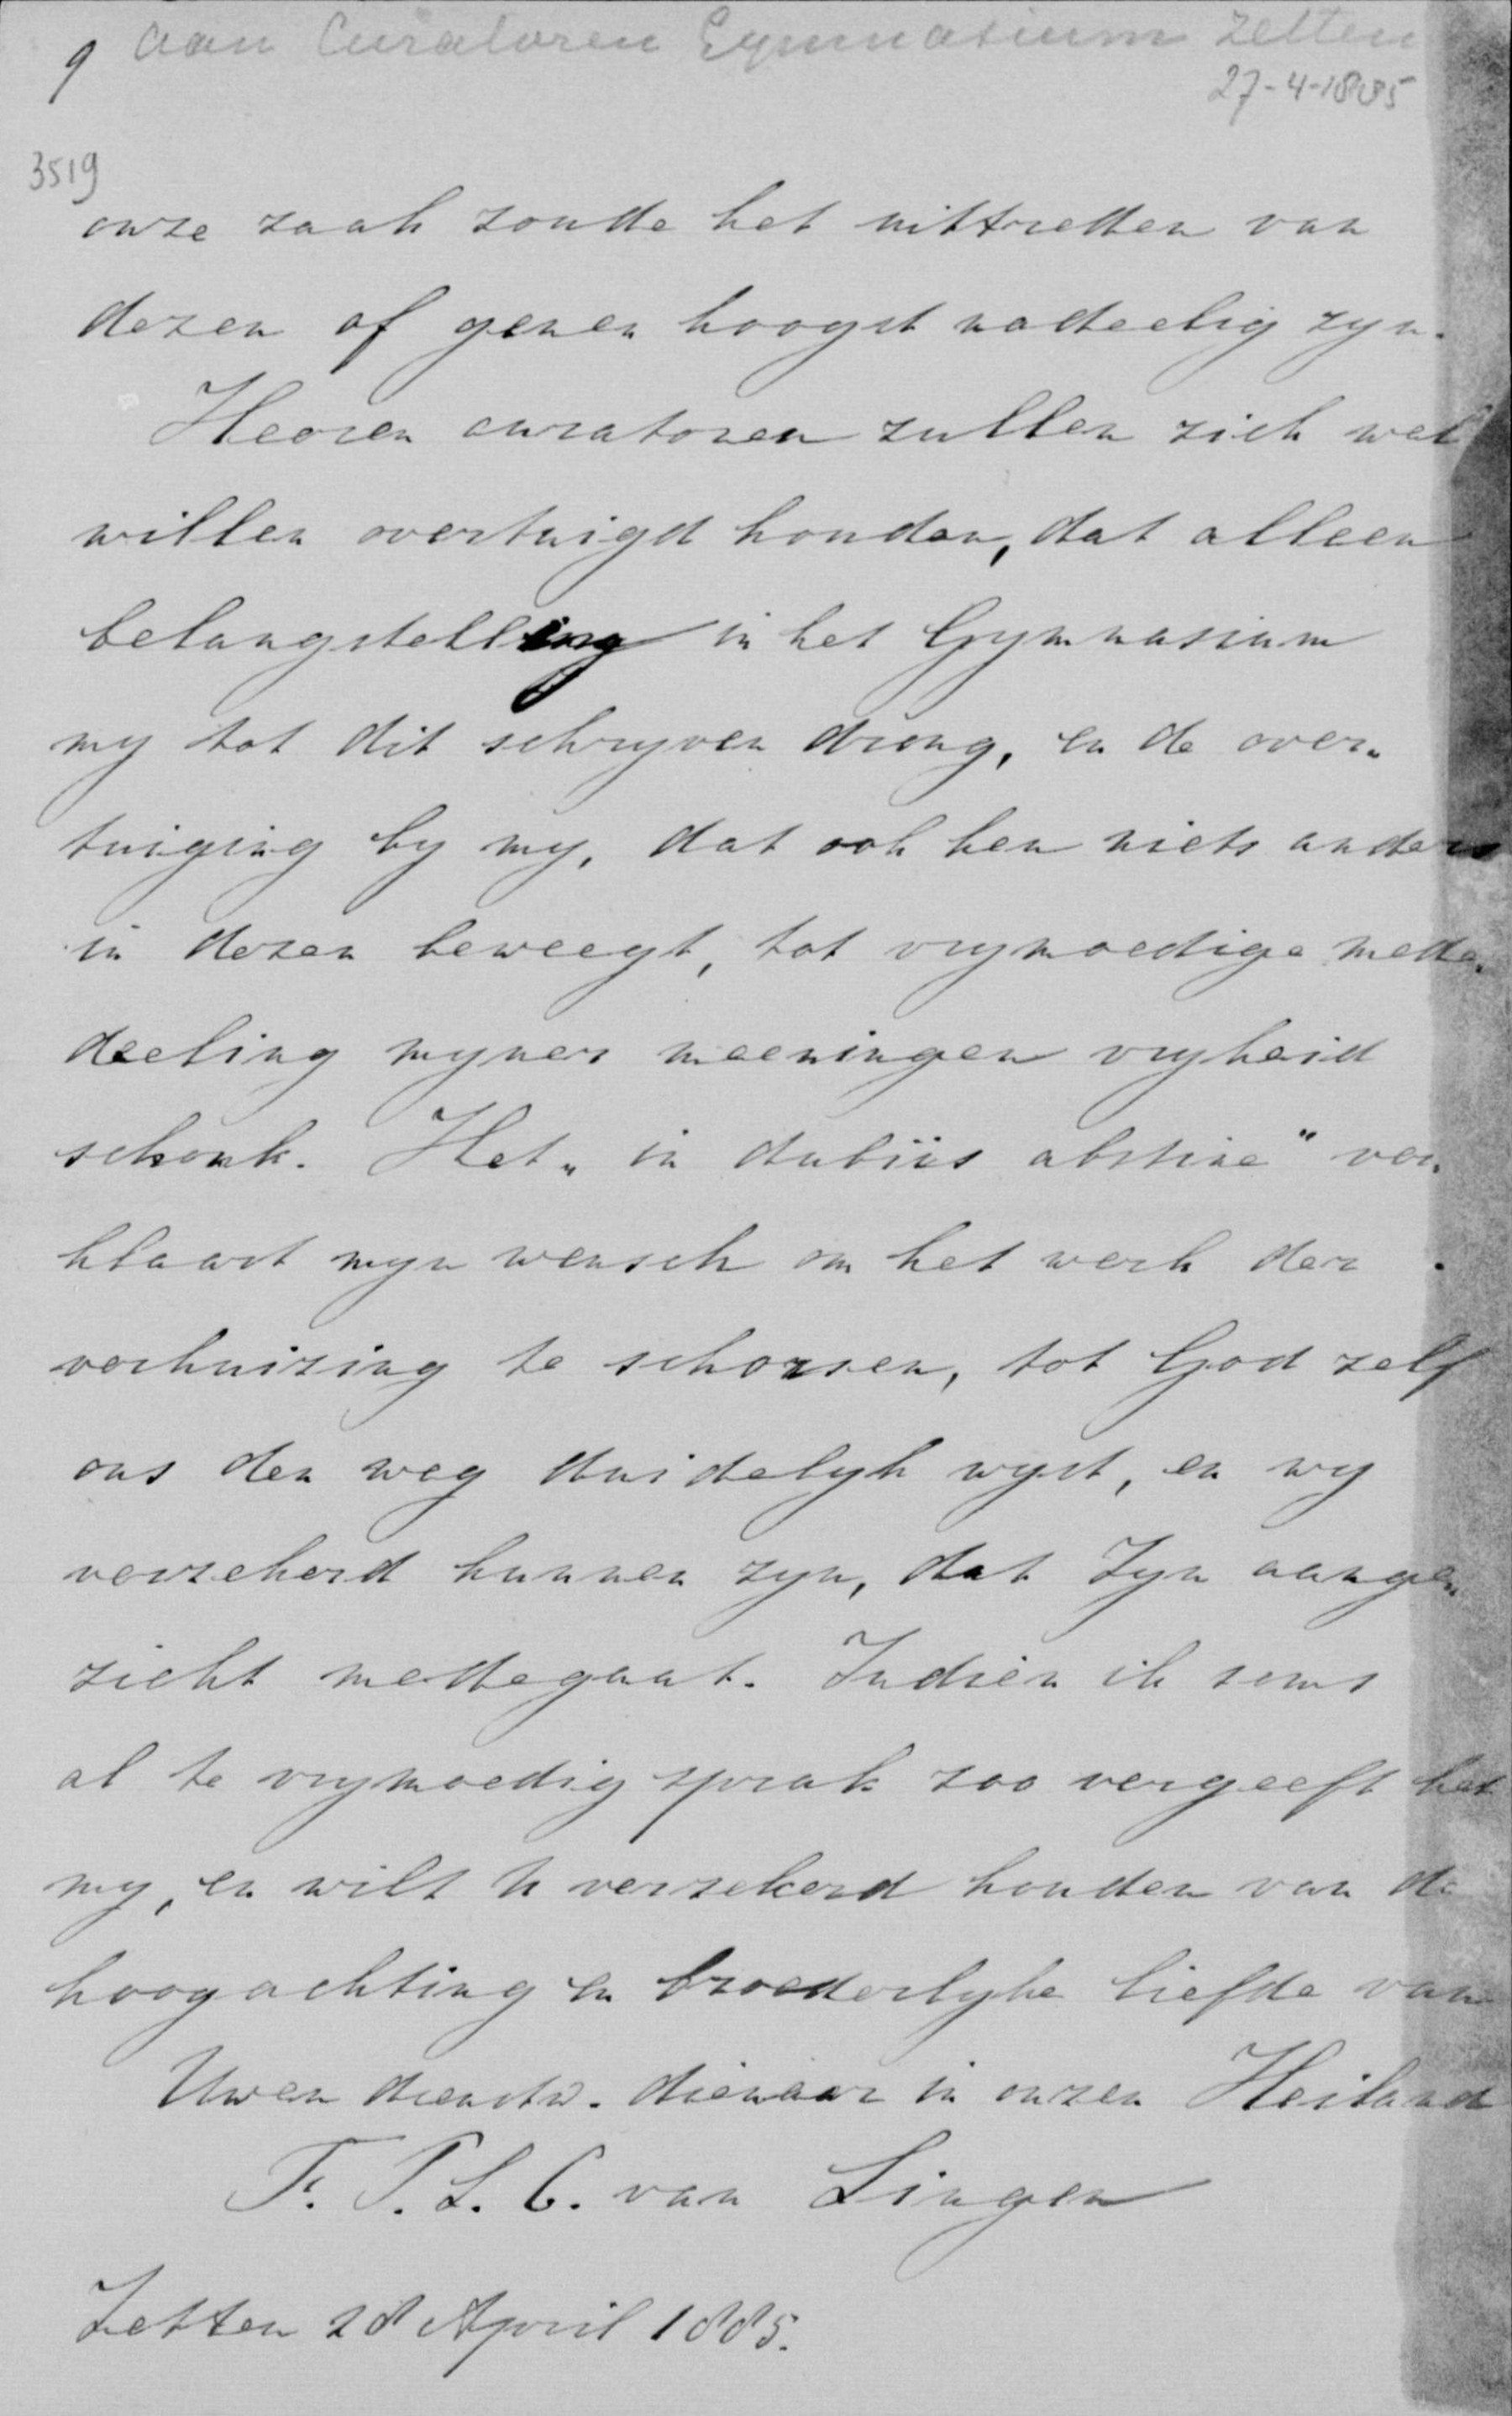 9 aan Curatoren Gymnasium Zetten
27-4-1885
3519
onze zaak zoude het uittreden van
dezen of genen hoogst nadeelig zyn.
Heeren curatoren zullen zich wel
willen overtuigd houden, dat alleen
belangstelling in het Gymnasium
my tot dit schryven drong, en de over„
tuiging by my, dat ook hen niets anders
in dezen beweegt, tot vrymoedige mede„
deeling myner meeningen vryheid
schonk. Het „in dubiis abstine" ver„
klaart myn wensch om het werk der
verhuizing te schorsen, tot God zelf
ons den weg duidelyk wyst, en wy
verzekerd kunnen zyn, dat Zyn aange„
zicht medegaat. Indien ik soms
al te vrymoedig sprak zoo vergeeft het
my, en wilt U verzekerd houden van de
hoogachting en broederlyke liefde van
Uwen dienstw. dienaar in onzen Heiland
F. P. L. C. van Lingen
Zetten 28 April 1885.